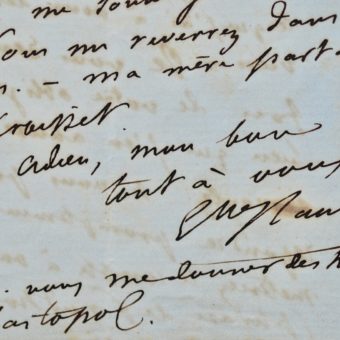 me
vous me reverrez dans
. – ma mère part
Croisset
adieu, mon bon
tout à vous
Gustav
. vous me donner des
astopol.